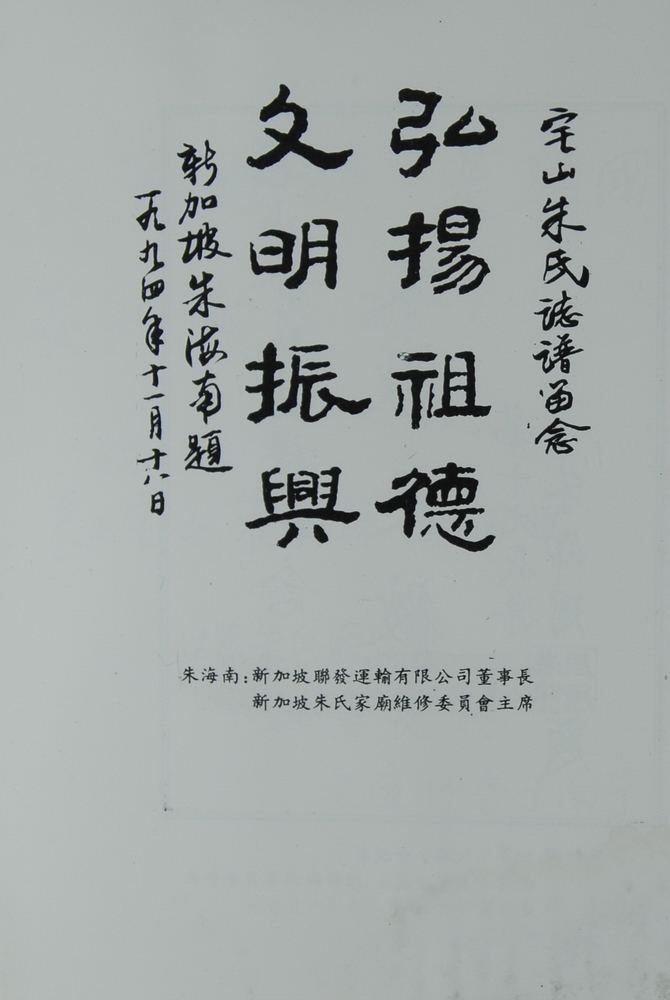 宅山朱氏誌譜留念
弘揚祖德
文明振興
新加坡朱海南題
一九九四年十一月十八日
朱海南：新加坡聯發運輸有限公司董事長
新加坡朱氏家廟維修委員會主席